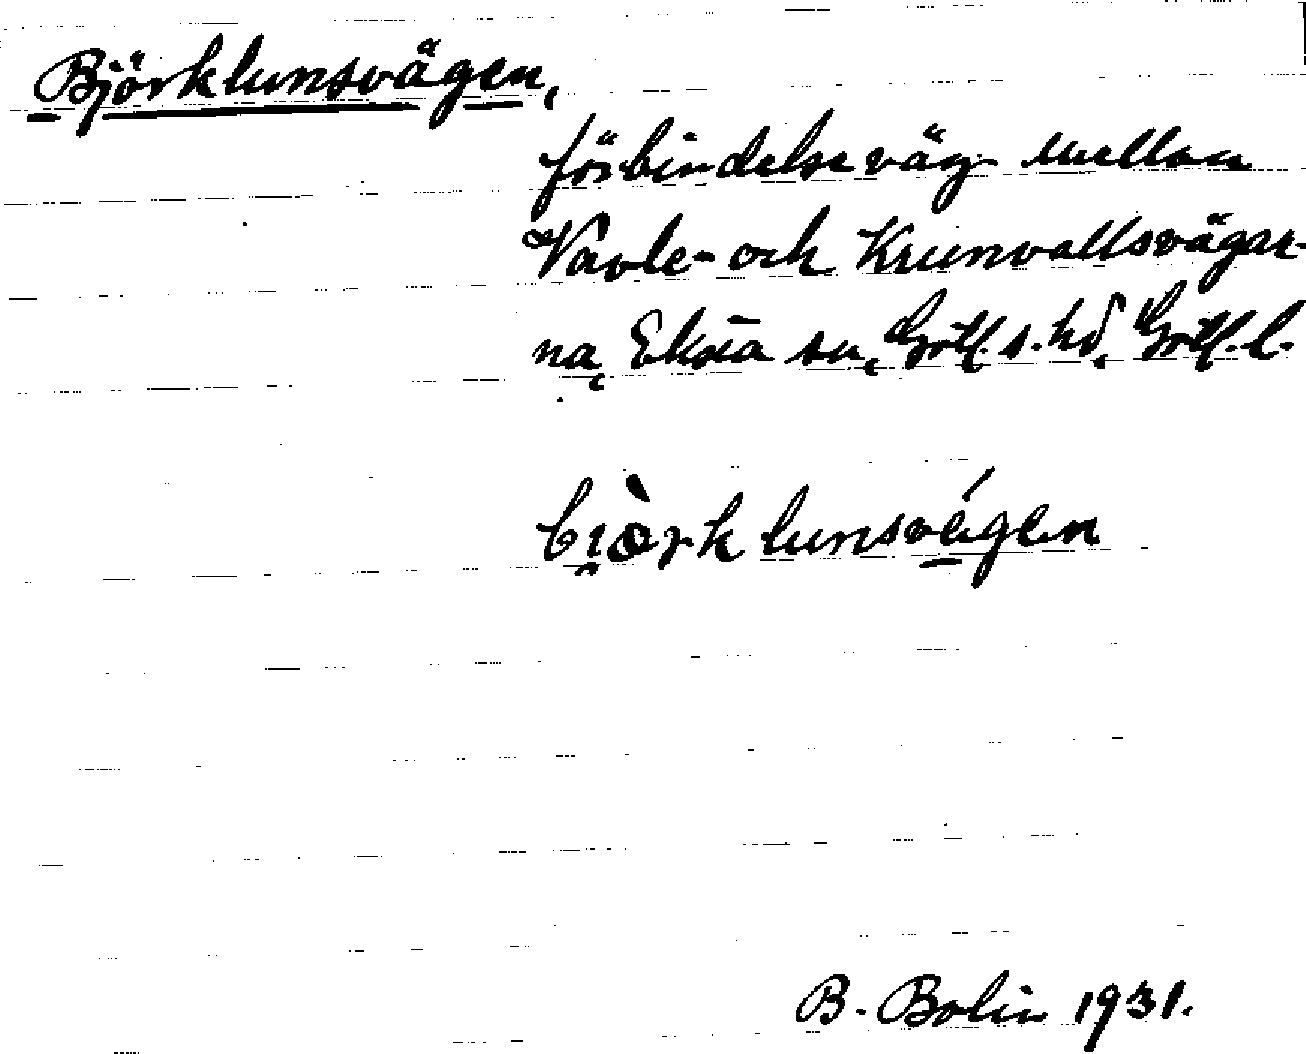 Björklunsvägen,
förbindelseväg mellan
Vavle- och Krunvallsvägar-
na, Eksta sn, Gotl. s. hd, Gotl. l.
bi̯òrk lunsvę́gen
B. Bolin 1931.